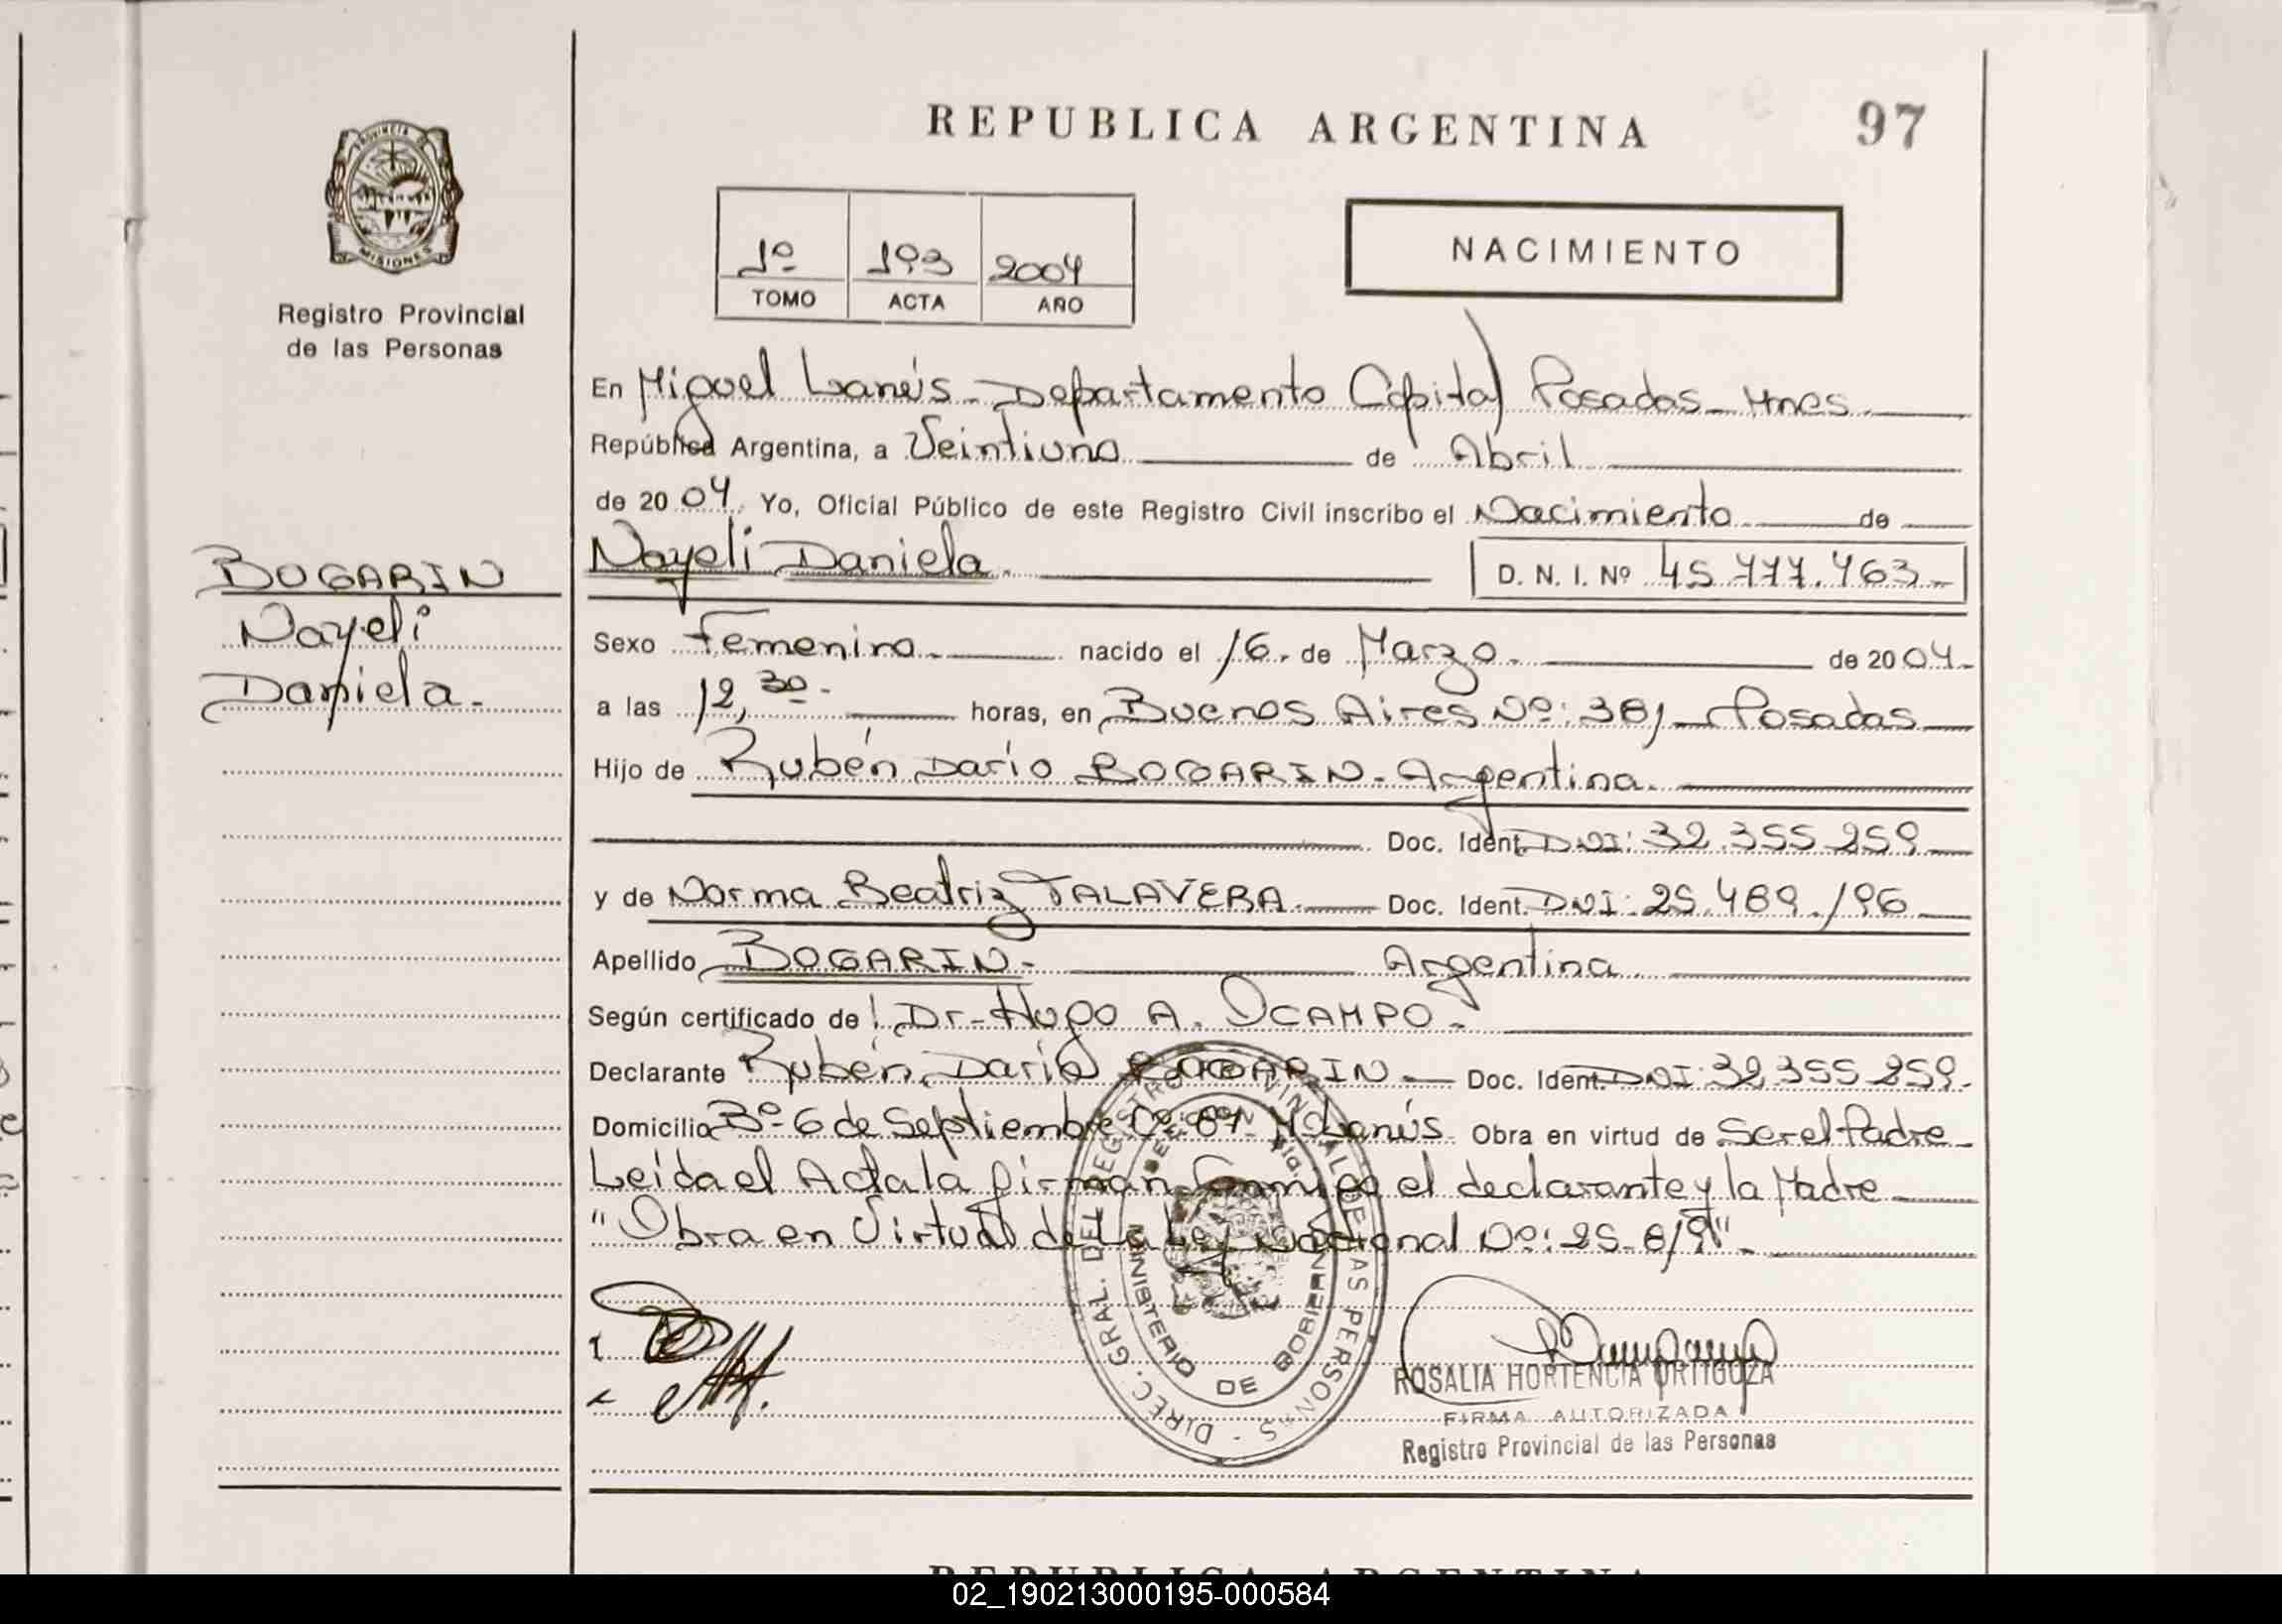 REPUBLICA ARGENTINA
97
PROVINCIA
MISIONES
Registro Provincial
de las Personas
1º 193 2004
TOMO ACTA AÑO
NACIMIENTO
En Miguel Lanús - Departamento Capital Posadas - Mnes.
República Argentina, a Veintiuno de Abril
de 2004. Yo, Oficial Público de este Registro Civil inscribo el Nacimiento de
Nayeli Daniela. D. N. I. Nº 45.777.763.-
BOGARIN
Nayeli
Daniela.-
Sexo Femenino.- nacido el 16. de Marzo. de 2004.-
a las 12,30.- horas, en Buenos Aires Nº: 381 - Posadas
Hijo de Rubén Darío BOGARIN - Argentina.
Doc. Ident. DNI: 32.355.259
y de Norma Beatriz TALAVERA. Doc. Ident. DNI: 25.489.196
Apellido BOGARIN.- Argentina.
Según certificado de: Dr. Hugo A. OCAMPO.-
Declarante Rubén Darío BOGARIN.- Doc. Ident. DNI: 32.355.259.-
Domicilio Bº 6 de Septiembre Cº: 87 - M. Lanús. Obra en virtud de Ser el Padre
Leida el Acta la firman Conmigo el declarante y la Madre
"Obra en Virtud de la Ley Nacional Nº: 25.819".-
DIREC. GRAL. DEL REGISTRO PROVINCIAL DE LAS PERSONAS -
MINISTERIO DE GOBIERNO
ROSALIA HORTENCIA ORTIGOZA
FIRMA AUTORIZADA
Registro Provincial de las Personas
REPUBLICA ARGENTINA
02_190213000195-000584